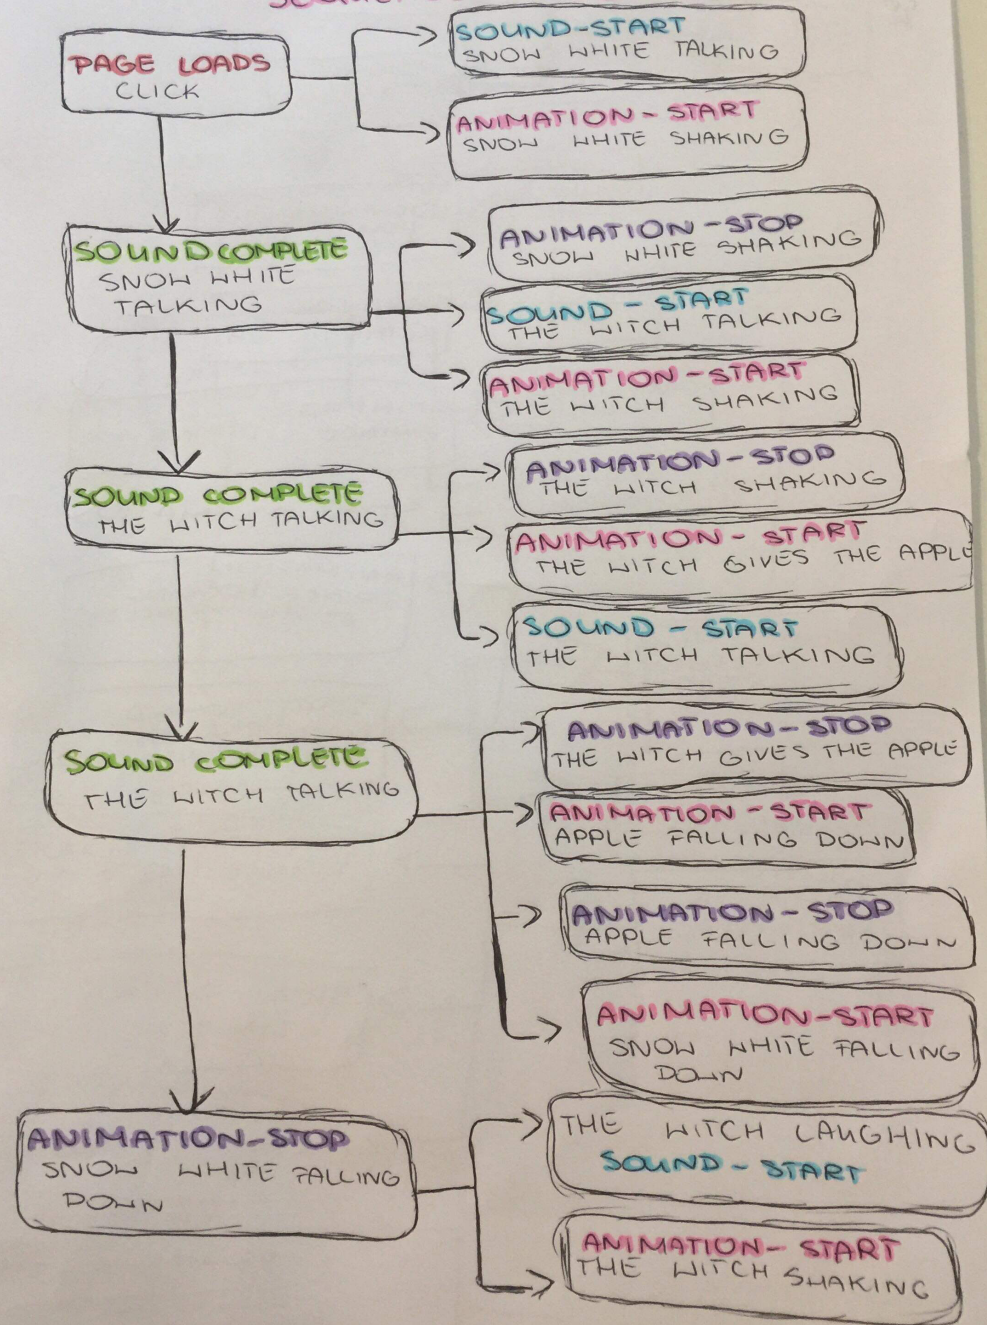 PAGE LOADS
CLICK
SOUND-START
SNOW WHITE TALKING
ANIMATION-START
SNOW WHITE SHAKING
SOUND COMPLETE
SNOW WHITE
TALKING
ANIMATION-STOP
SNOW WHITE SHAKING
SOUND - START
THE WITCH TALKING
ANIMATION-START
THE WITCH SHAKING
SOUND COMPLETE
THE WITCH TALKING
ANIMATION-STOP
THE WITCH SHAKING
ANIMATION- START
THE WITCH GIVES THE APPLE
SOUND - START
THE WITCH TALKING
SOUND COMPLETE
THE WITCH TALKING
ANIMATION-STOP
THE WITCH GIVES THE APPLE
ANIMATION - START
APPLE FALLING DOWN
ANIMATION - STOP
APPLE FALLING DOWN
ANIMATION-START
SNOW WHITE FALLING
DOWN
ANIMATION-STOP
SNOW WHITE FALLING
DOWN
THE WITCH LAUGHING
SOUND - START
ANIMATION- START
THE WITCH SHAKING